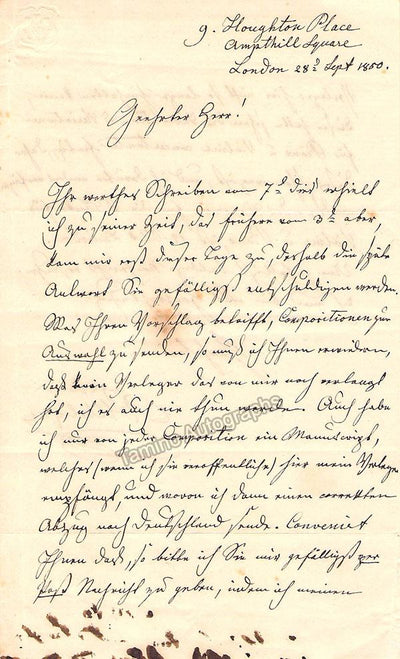 9. Houghton Place
Ampthill Square
London 28? Sept 1850.
Geehrter Herr!
Ihr werthes Schreiben vom 7t dies erhielt
ich zu seiner Zeit, das frühere vom 3t aber,
kam mir erst dieser Tage zu, deshalb die späte
Antwort Sie gefälligst entschuldigen werden.
Was Ihren Vorschlag betrifft, Compositionen zur
Auswahl zu senden, so muß ich Ihnen erwidern,
daß kein Verleger das von mir noch verlangt
hat, ich es auch nie thun werde. Auch habe
ich nur von jeder Composition ein Manuscript,
welches (wenn ich sie veröffentliche) hier mein Verleger
empfängt, und wovon ich dann einen correkten
Abzug nach Deutschland sende. Convenirt
Ihnen das, so bitte ich Sie mir gefälligst per
Post Nachricht zu geben, indem ich meinen
Tamino Autographs